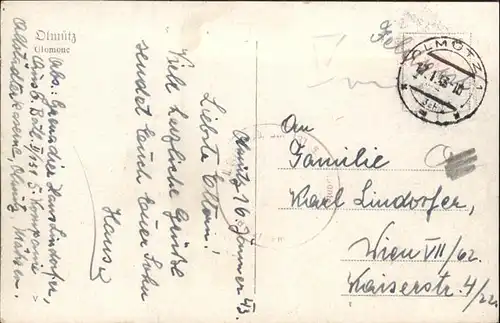 Olmütz
Olomouc
Abs: Grenadier Hans Lindorfer,
Ausb. Batl. II/131 5. Kompanie
Olmütz, Mähren.
Olmütz 16 Jänner 43.
Liebste Eltern!
Viele herzliche Grüße
sendet Euch Euer Sohn
Hansi
Feldpost
OLMÜTZ 1
An
Familie
Karl Lindorfer,
Wien VII/62
Kaiserstr. 4/22